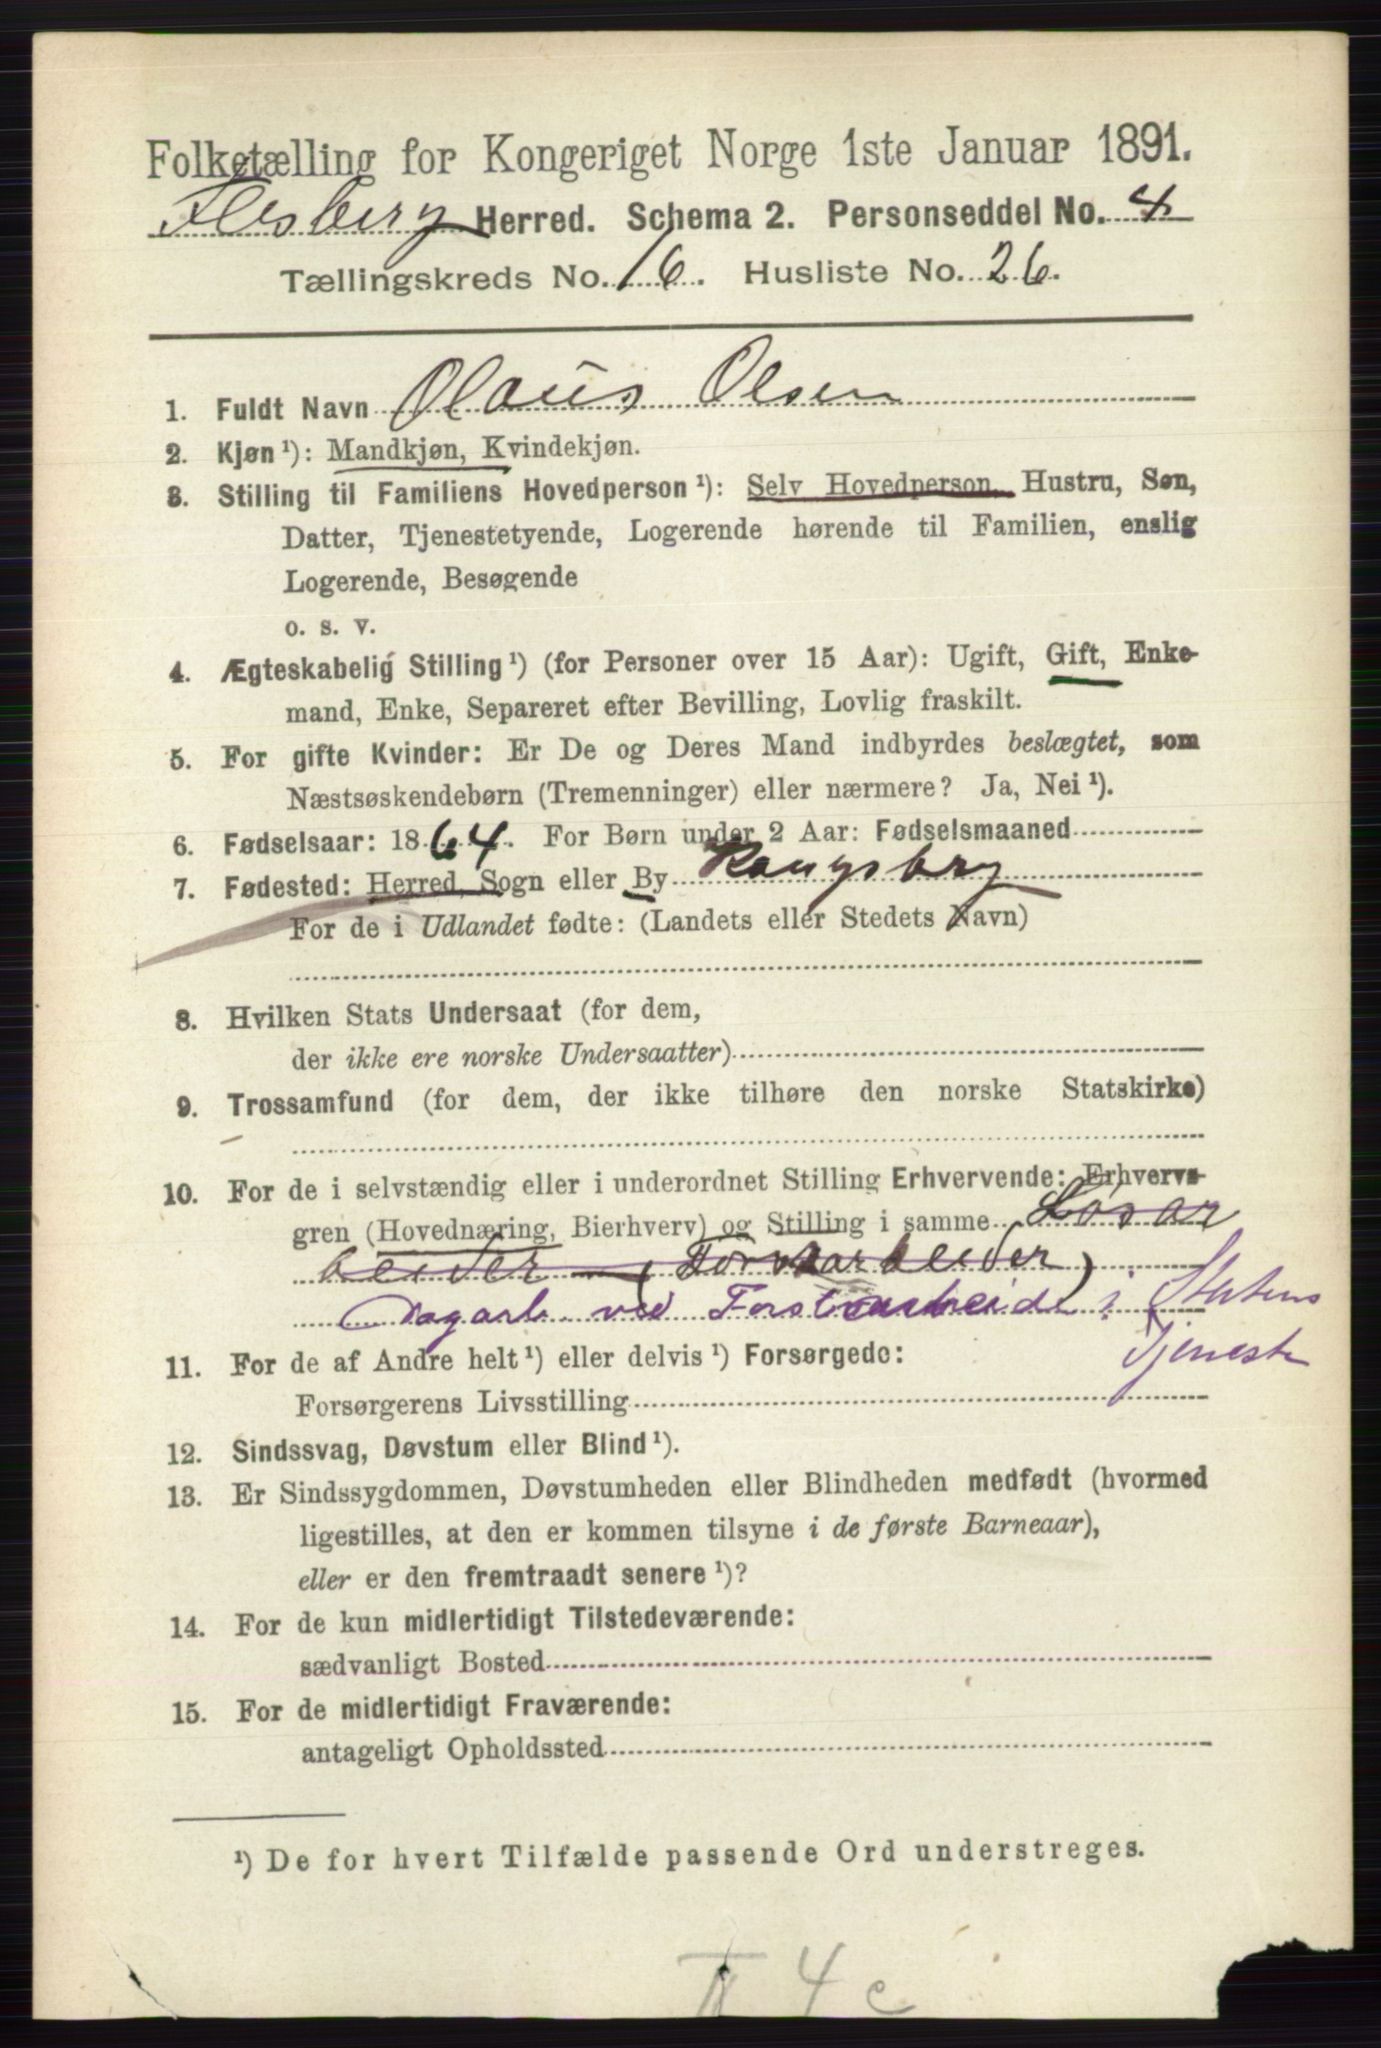 Folketælling for Kongeriget Norge 1ste Januar 1891.
Flesberg Herred. Schema 2. Personseddel No. 4
Tællingskreds No. 16. Husliste No. 26.
1. Fuldt Navn Olaus Olsen
2. Kjøn ¹): Mandkjøn, Kvindekjøn.
3. Stilling til Familiens Hovedperson ¹): Selv Hovedperson, Hustru, Søn,
Datter, Tjenestetyende, Logerende hørende til Familien, enslig
Logerende, Besøgende
o. s. v.
4. Ægteskabelig Stilling ¹) (for Personer over 15 Aar): Ugift, Gift, Enke-
mand, Enke, Separeret efter Bevilling, Lovlig fraskilt.
5. For gifte Kvinder: Er De og Deres Mand indbyrdes beslægtet, som
Næstsøskendebørn (Tremenninger) eller nærmere? Ja, Nei ¹).
6. Fødselsaar: 1864. For Børn under 2 Aar: Fødselsmaaned
7. Fødested: Herred, Sogn eller By Kongsberg
For de i Udlandet fødte: (Landets eller Stedets Navn)
8. Hvilken Stats Undersaat (for dem,
der ikke ere norske Undersaatter)
9. Trossamfund (for dem, der ikke tilhøre den norske Statskirke)
10. For de i selvstændig eller i underordnet Stilling Erhvervende: Erhvervs-
gren (Hovednæring, Bierhverv) og Stilling i samme Løsar
beider (Forstarbeider)
Dagarb. ved Forstarbeide i Statens
Tjeneste
11. For de af Andre helt ¹) eller delvis ¹) Forsørgede:
Forsørgerens Livsstilling
12. Sindssvag, Døvstum eller Blind ¹).
13. Er Sindssygdommen, Døvstumheden eller Blindheden medfødt (hvormed
ligestilles, at den er kommen tilsyne i de første Barneaar),
eller er den fremtraadt senere ¹)?
14. For de kun midlertidigt Tilstedeværende:
sædvanligt Bosted
15. For de midlertidigt Fraværende:
antageligt Opholdssted
¹) De for hvert Tilfælde passende Ord understreges.
II 4 c